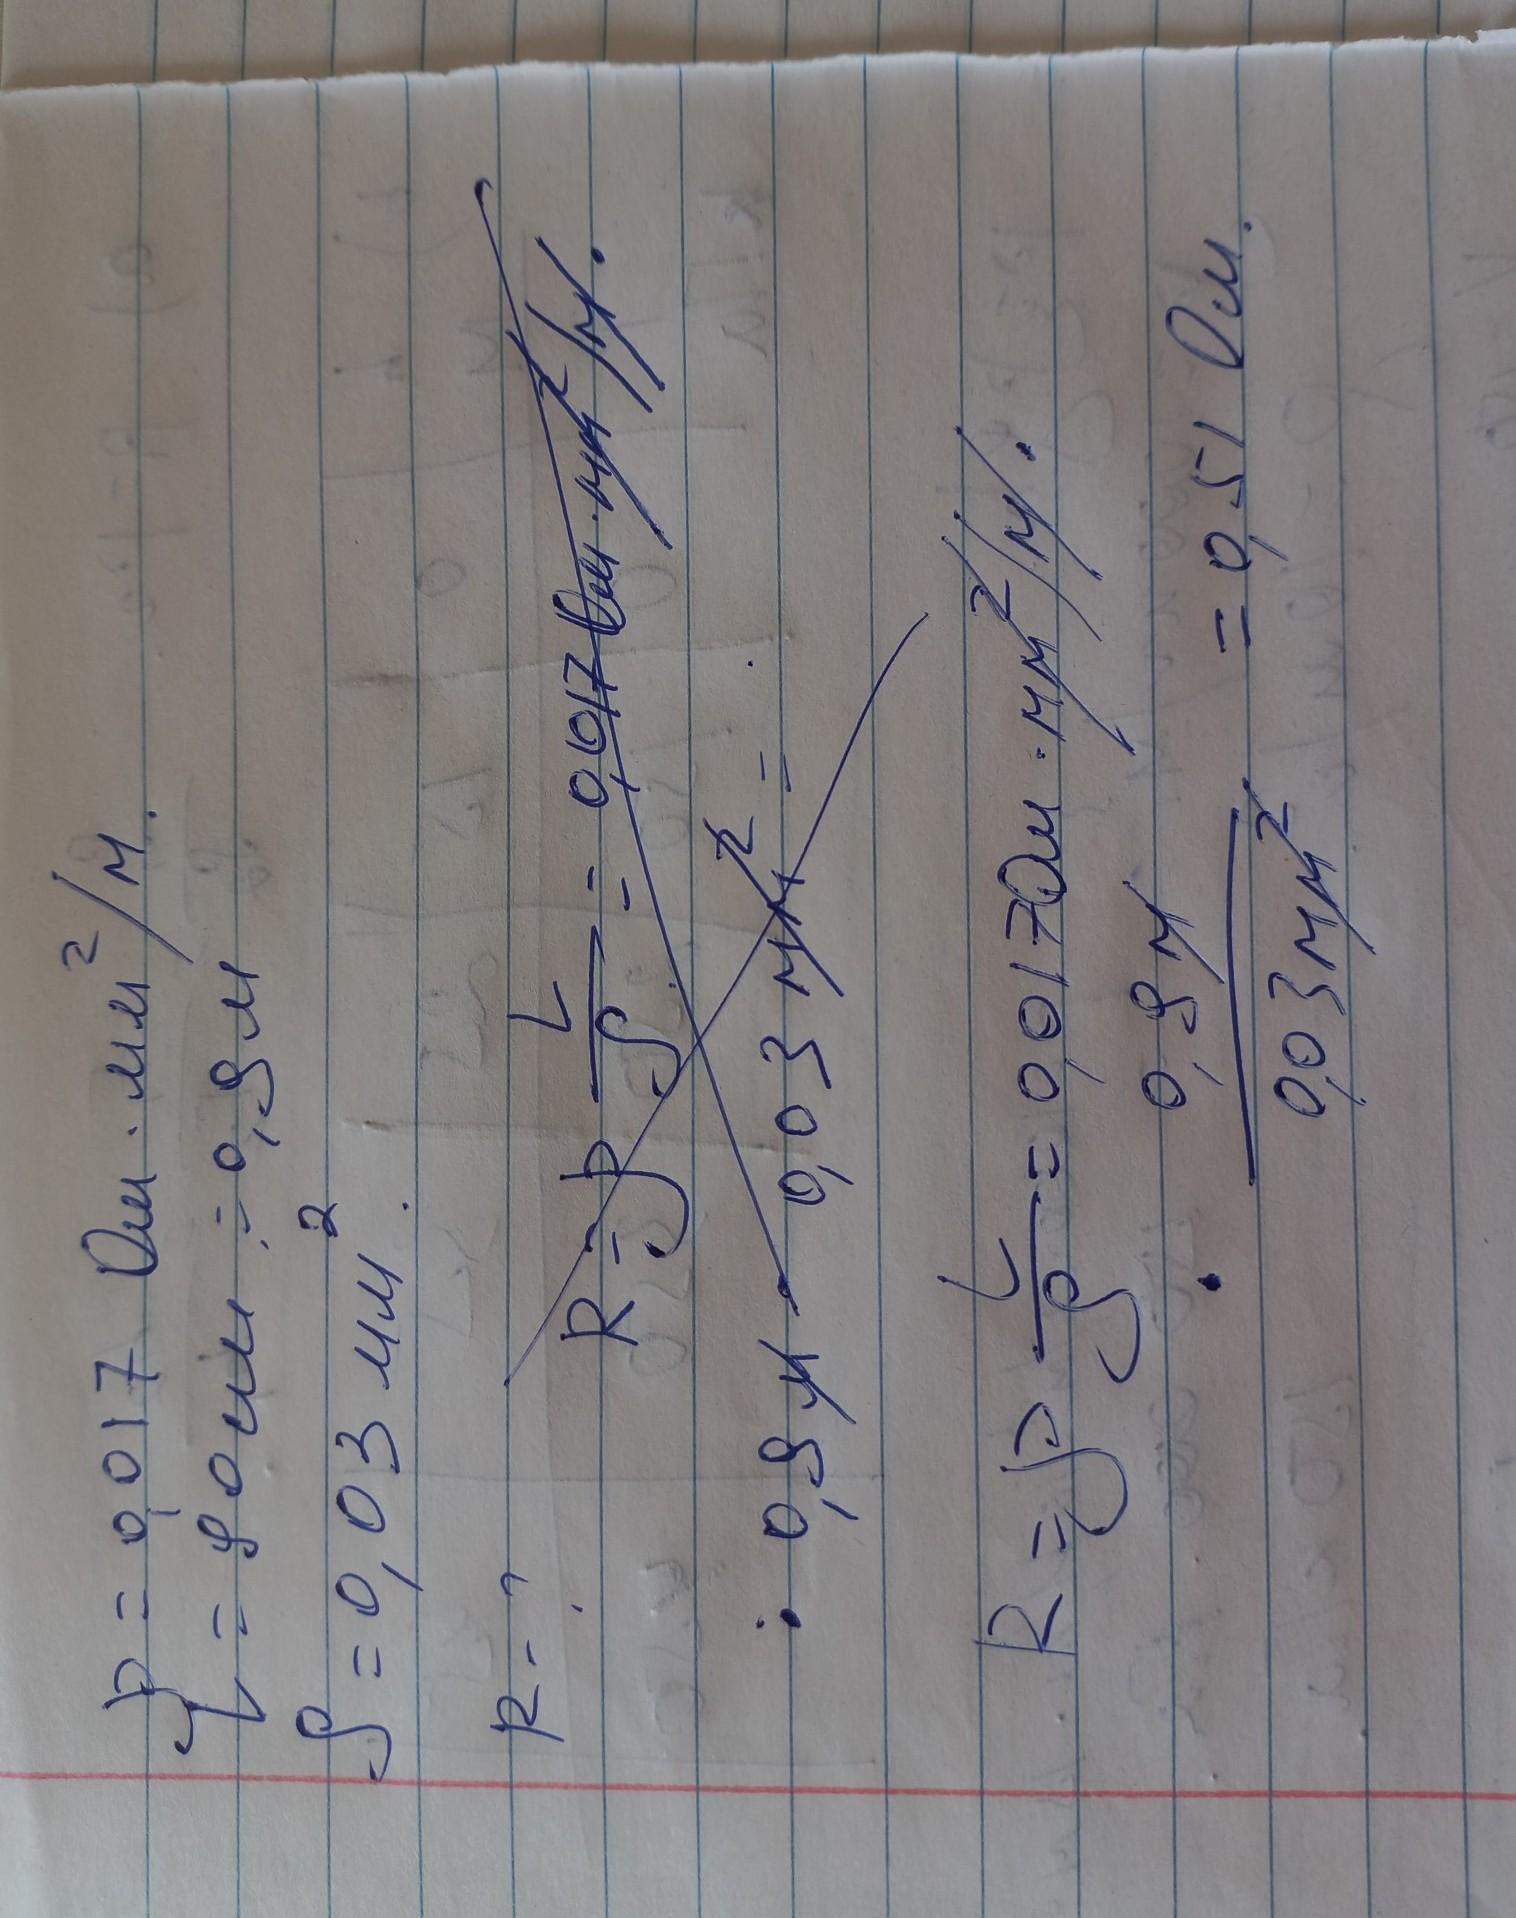 ρ = 0,017 Ом · мм²/м.
L = 90 см = 0,9 м
S = 0,03 мм².
R - ?
R = ρ L/S = 0,017 Ом · мм²/м ·
· 0,9 м · 0,03 мм² =
R = ρ L/S = 0,017 Ом · мм²/м ·
· 0,9 м / 0,03 мм² = 0,51 Ом.